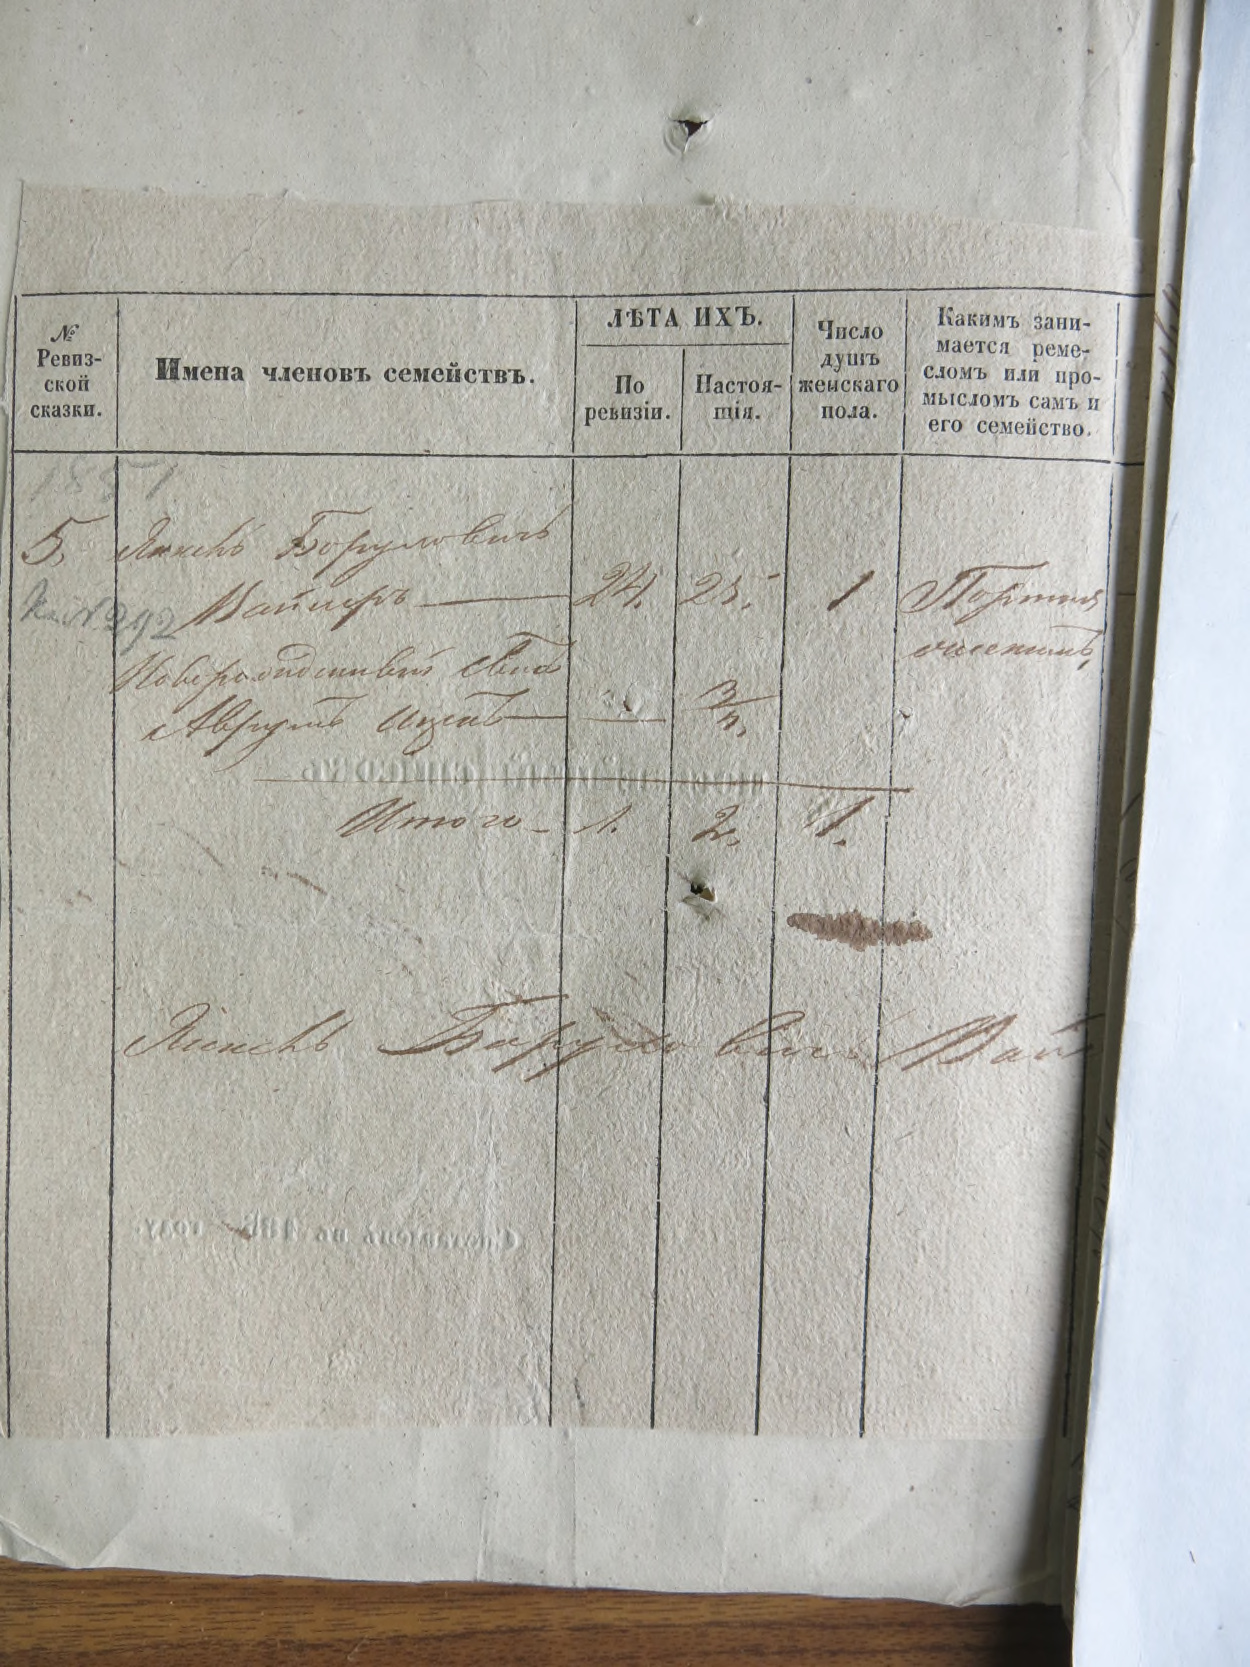 №
Ревиз-
ской
сказки.
Имена членовъ семействъ.
ЛѢТА ИХЪ.
По
ревизіи.
Настоя-
щія.
Число
душъ
женскаго
пола.
Какимъ зани-
мается реме-
сломъ или про-
мысломъ самъ и
его семейство.
1851
5, Янкель Боруховичъ
Вайнеръ 24. 25. 1 Портня
№ 292
Новорожденный сынъ
Аврумъ Ицекъ 3/4.
Итого 1. 2. 1.
Янкель Борухо вичъ Вай
Составленъ въ 185 году.